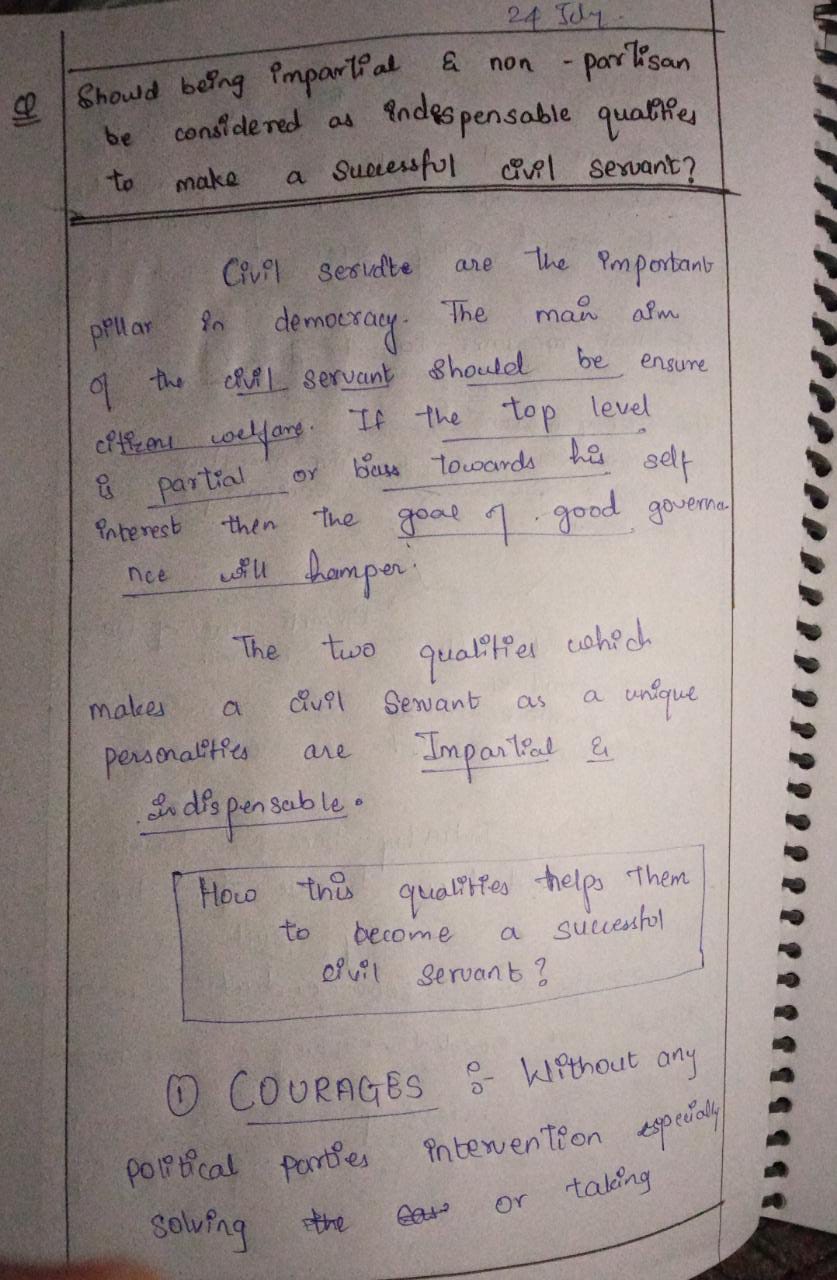 24 July.
Q Should being impartial & non - partisan
be considered as indespensable qualities
to make a Successful civil servant?
Civil servdte are the important
pillar in democracy. The main aim
of the civil servant should be ensure
citizens welfare. If the top level
is partial or bias towards his self
interest then the goal of good governa
nce will hamper.
The two qualities which
makes a civil Servant as a unique
personalities are Impartial &
Indispensable.
How this qualities helps Them
to become a successful
civil servant?
① COURAGES :- Without any
political parties intervention especially
solving the or taking